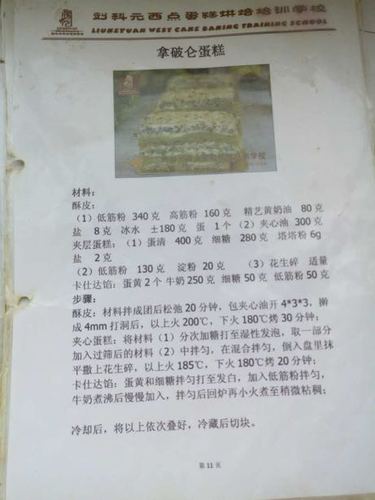 刘科元西点蛋糕烘焙培训学校
LIUKEYUAN WEST CAKE BAKING TRAINING SCHOOL
拿破仑蛋糕
材料：
酥皮：
（1）低筋粉 340 克 高筋粉 160 克 精艺黄奶油 80 克
盐 8 克 冰水 ±180 克 蛋 1 个（2）夹心油 300 克
夹层蛋糕：（1）蛋清 400 克 细糖 280 克 塔塔粉 6g
盐 2 克
（2）低筋粉 130 克 淀粉 20 克 （3）花生碎 适量
卡仕达馅：蛋黄 2 个 牛奶 250 克 细糖 50 克 低筋粉 50 克
步骤：
酥皮：材料拌成团后松弛 20 分钟，包夹心油开 4*3*3，擀
成 4mm 打洞后，以上火 200℃，下火 180℃烤 30 分钟；
夹心蛋糕：将材料（1）分次加糖打至湿性发泡，取一部分
加入过筛后的材料（2）中拌匀，在混合拌匀，倒入盘里抹
平撒上花生碎，以上火 185℃，下火 180℃烤 20 分钟；
卡仕达馅：蛋黄和细糖拌匀打至发白，加入低筋粉拌匀，
牛奶煮沸后慢慢加入，拌匀后回炉再小火煮至稍微粘稠；
冷却后，将以上依次叠好，冷藏后切块。
第 11 页